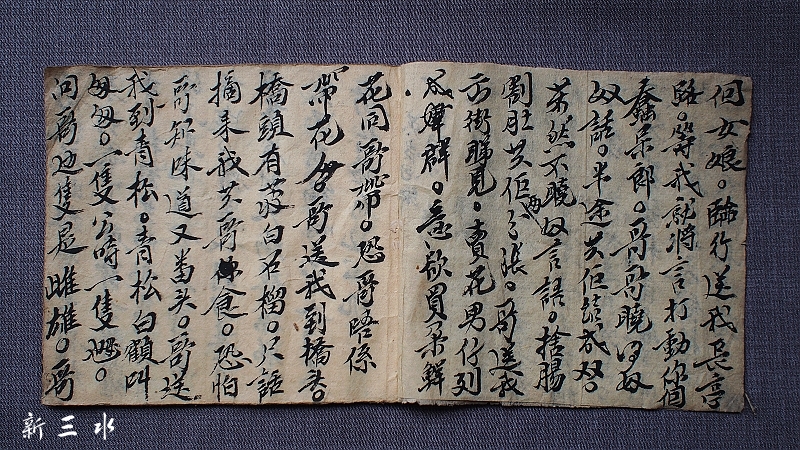 個女娘。臨行送我長亭
路。等我就將言打動你個
蠢呆郎。哥哥曉得奴
奴話。半途共佢結成双。
茶然不曉奴言語。捨腸
割肚共佢分張。哥送我
云街睇見。賣花男仔列
成嬋群。意欲買朵鮮
花同哥帶。恐哥唔係
帶花人。哥送我到橋头。
橋頭有蒂白石榴。只話
摘来我共哥食。恐怕
哥知味道又番头。哥送
我到青松。青松白鶴叫
匆匆。一隻公時一隻乸。
问哥边隻是雌雄。哥
新三水